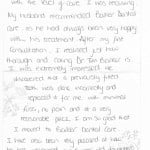 with the level of care I was receiving.
My husband recommended Barker Dental
Care as he had always been very happy
with his treatment. After my first
consultation, I realised just how
thorough and caring Dr Tim Barker is.
I was extremely impressed. He
discovered that a previously fitted
was done incorrectly and
repaired it for me with minimal
fuss, no pain and at a very
reasonable price. I am so glad that
I moved to Barker Dental Care.
I have also been very pleased at how